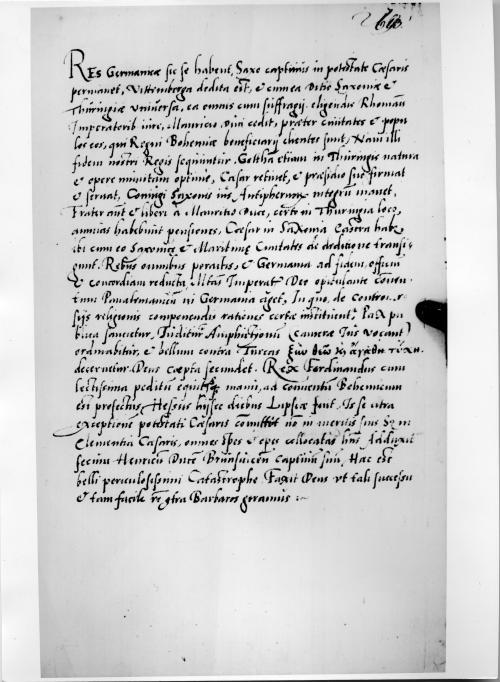 Res Germaniæ sic se habent, Saxo captivus in potestate Cæsaris
permanet, Vittemberga dedita est, et omnis ditio Saxoniæ et
Thuringiæ universa, ea omnis cum suffragij eligendi Rhomani
Imperatoris iure, Mauricio Duci cedit, præter civitates et popu
los eos, qui Regni Bohemiæ beneficiarij clientes sunt, Nam illi
fidem nostri Regis sequuntur. Gottha etiam in Thuringia natura
et opere munitam optime, Cæsar retinet, et præsidio suo firmat
et servat, Coniugi Saxonis ius Antipherny integrum manet,
Frater aut et liberi a Mauritio Duce, certo in Thuringia loco,
annuas habebunt pensiones, Cæsar in Saxonia Castra habet
ibi cum eo Saxonicæ et Maritimæ Civitates de deditione transi
gunt. Rebus omnibus peractis, et Germania ad fidem, officium
et concordiam reducta, Mtas Imperat Deo opitulante Conven
tum Panalemanicum in Germania aget, In quo, de controver
sijs religionis componendis rationes certæ instituent, Pax pu
blica sancietur, Iuditium Amphictyonum (cameræ Ius vocant)
ordinabitur, et bellum contra Turcas ξὺν θεῷ κỳ ἀγαθῇ τύχῃ.
decernetur. Deus cæpta secundet. Rex Ferdinandus cum
lectissima peditum equitumque manu, ad conventum Bohemicum
est profectus, Hessus hisce diebus Lipsiæ fuit, Is se citra
exceptione potestati Cæsaris committit non in meritis suis sed in
Clementia Cæsaris, omnes spes et opes collocatas habens, Adduxit
secum Henricum Ducem Brunsuicensem captivum suum, Hæc est
belli periculosissimi Catastrophe Faxit Deus ut tali successu
et tam facile rem contra Barbaros geramus :~